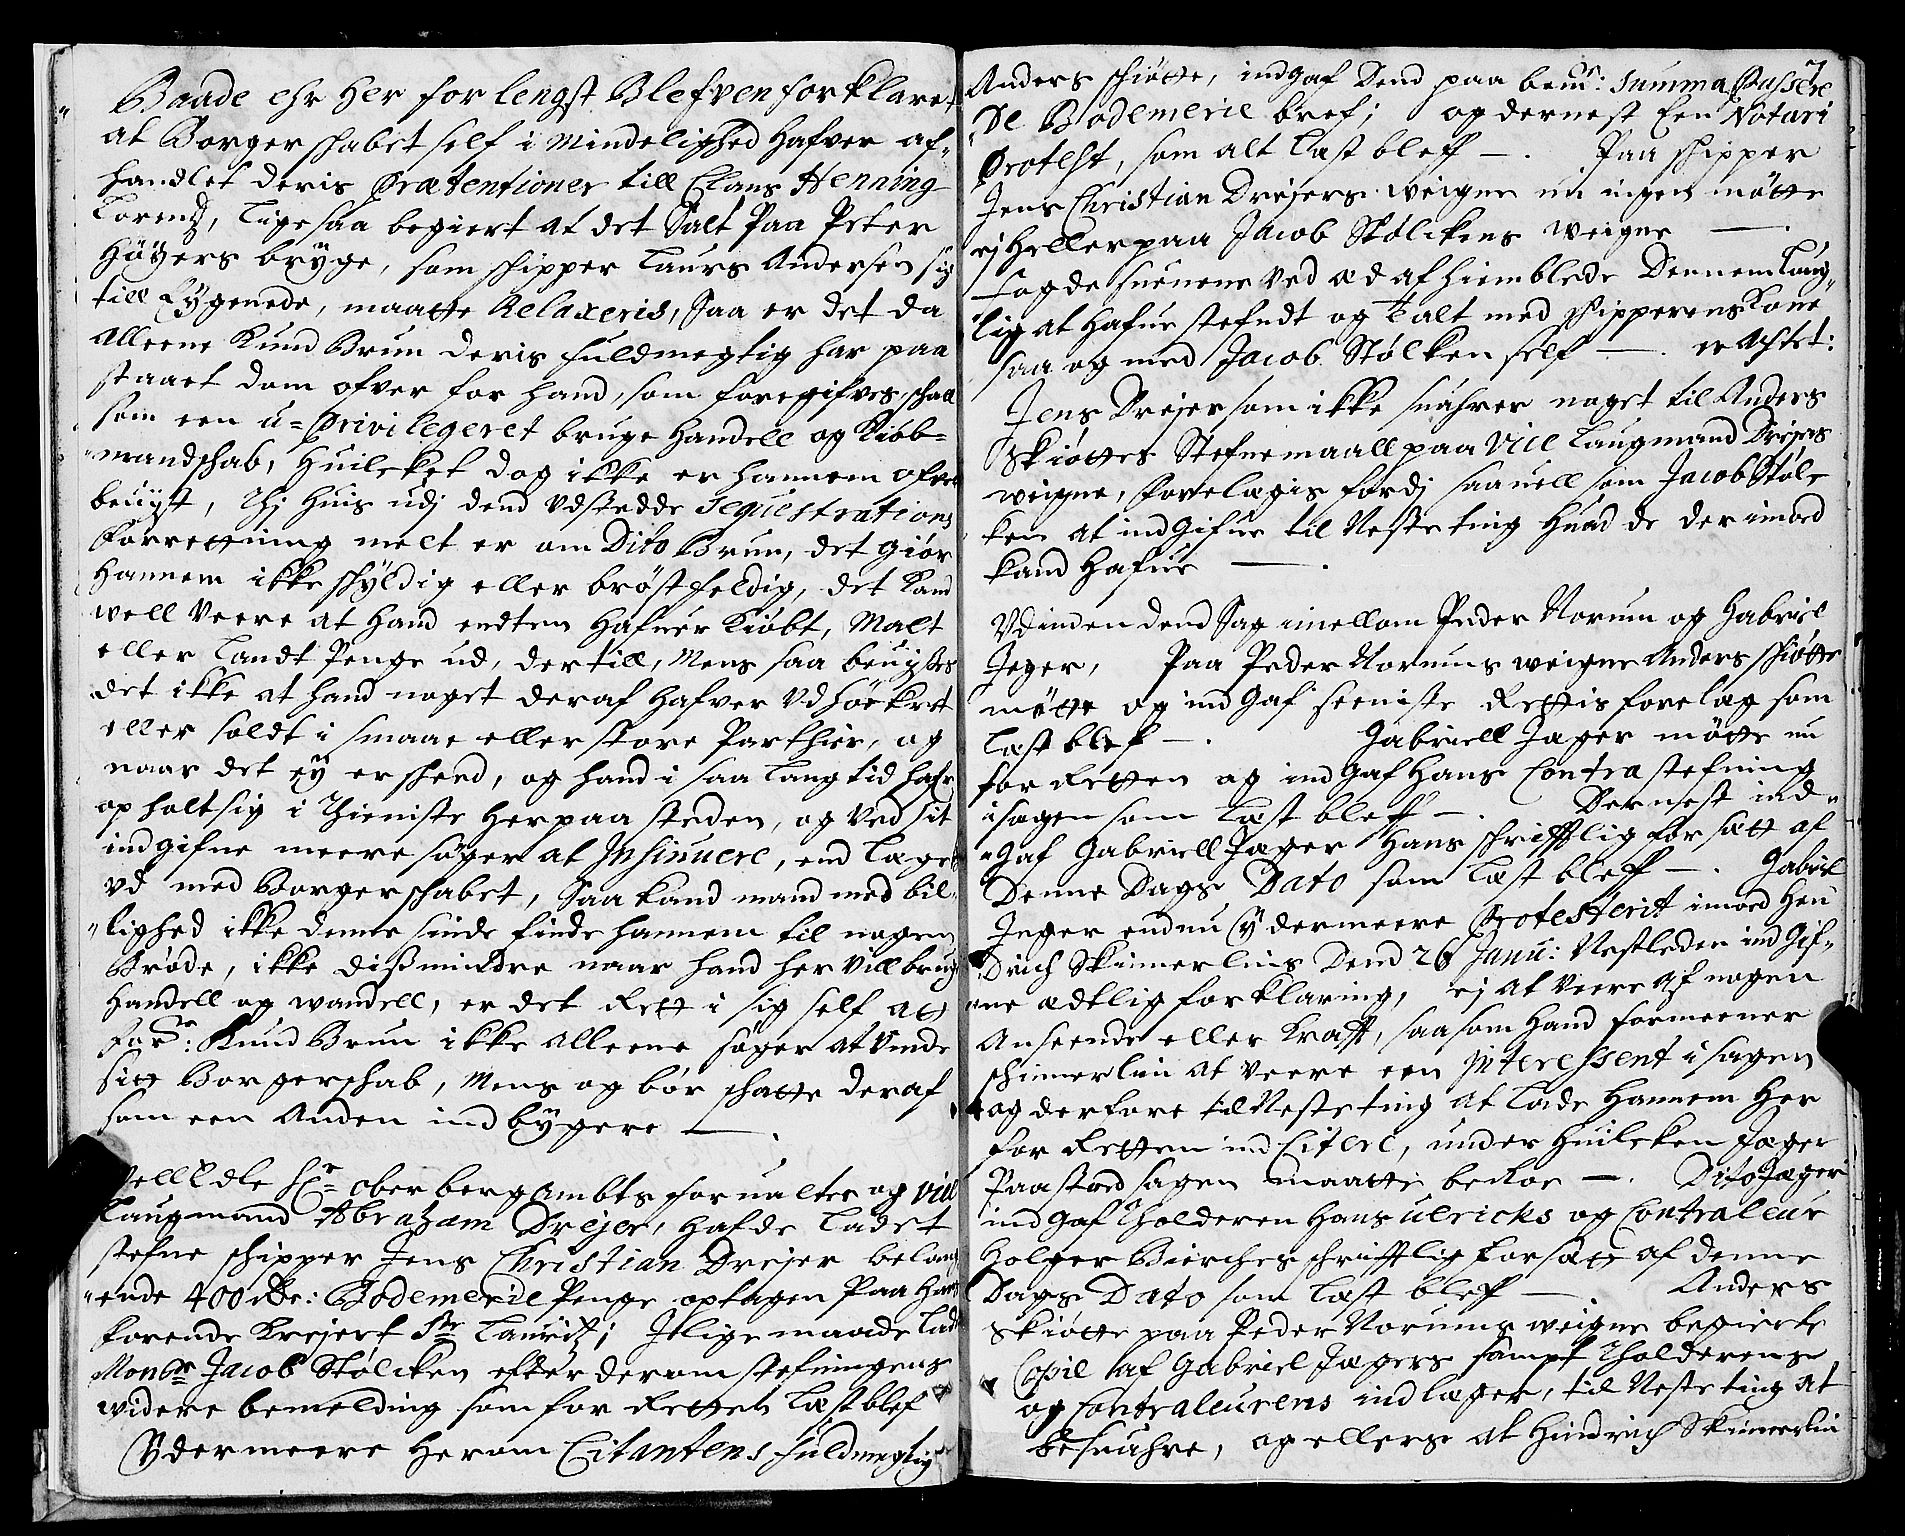 Baade ehr her for lengst Blefven forklaret
at Borgerskabet self i Mindelighed hafver af-
handlet deris Prætentioner till Claus Henning
Lorentz, ligesaa begiert at det Salt Paa Peter
Høÿers brÿge, som skipper Laurs Andersen sig
till Eÿgenede, maatte Relaxeris, Saa er det da
alleene Knud Brun deris fuldmegtig har paa
staaet dom ofver for hand, som foregifves, skall
som een u-Privilegeret bruge Handell og Kiøb-
mandskab, huilcket dog ikke er hannem ofver
beuÿst, thj huis udj dend udstedde Sequestrations
Forrettning melt er om Dito Brun, det giør
hannem ikke skÿldig eller brøstfeldig, det kand
well veere at hand endten hafuer Kiøbt, Malt
eller Landt Penge ud, dertill, Mens saa beuÿses
det ikke at hand noget deraf hafver udhøekret
eller soldt i smaae eller store Parthier, og
naar det eÿ er skeed, og hand i saa lang tid hafr
opholt sig i thieniste her paa steden, og ved sit
indgifne meere søger at Insinuere, end Lægel
ud med Borgerskabet, Saa kand mand med bil-
lighed ikke denne sinde finde hannem til nogen
Brøde, ikke dissmindre naar hand her vill bruge
handell og wandell, er det Rett i sig self att
for: Knud Brun ikke alleene søger at vinde
sitt Borgerskab, Mens og bør skatte deraf
som een anden indbÿgere —.
VellEdle Hr ober berg Ambts forualter og Vice
Laugmand Abraham Dreÿer, hafde Ladet
stefne skipper Jens Christian Dreÿer belang
ende 400 rdr: Bodemerie Penge optagen Paa hans
førende Kreÿert St Lauritz; Jlige maade Lad
Monsr Jacob Stølcken efter derom stefningens
widere bemelding som for Retten Læst blef
Ÿdermeere herom Citantens fuldmegtig
7
Anders skiøtte, indgaf dend paa bemte: Summa Passere
de Bodemerie bref; og dernest Een Notari
Protest, som alt Læst bleff —. Paa skipper
Jens Christian Dreÿers weigne nu ingen møtte
ej heller paa Jacob Stølckens weigne —.
togde suenene ved æd afhiemblede dennem Laug-
lig at hafue stefndt og talt med skipperens Kone
saa og med Jacob Stølcken self —. er Agtet:
Jens Dreÿer som ikke suahrer noget til Anders
Skiøttes Stefnemaall paa Vice Laugmand Dreÿers
weigne, forelægis fordj saauell som Jacob Støl-
ken at indgifue til Neste ting huad de derimod
kand hafue —.
Udinden dend Sag imellom Peder Norum og Gabriel
Jeger, Paa Peder Norums weigne Anders skiøtte
møtte og indgaf seeniste Rettis forelæg som
Læst blef —. Gabriell Jæger møtte nu
for Retten og indgaf hans Contra stefning
i sagen som Læst bleff —. Dernest ind-
gaf Gabriell Jæger hans skrifftlig forsætt af
denne Dags Dato som Læst bleff —. Gabriel
Jeger endnu ÿdermeere Protesterit imod Hen
drich Skinnerlins dend 26 Janu: Nestleden indgif-
ne ædtlig forklaring, ej at veere af nogen
Anseende eller Krafft, saasom hand formeener
skinnerlin at veere een Interessent i sagen
og derfore til Neste ting at Lade hannem her
for Retten ind Citere, under huilcken Jæger
Paastod sagen maatte beroe —. Dito Jæger
indgaf tholderen Hans Ulricks og Contraleur
Holger Bierches skrifftlig forsætt af denne
Dags Dato som Læst bleff —. Anders
Skiøtte paa Peder Norums weigne begierte
Copie af Gabriel Jægers sampt tholderens
og Contraleurens indlæger, til Neste ting at
besuahre, og ellers at Hindrich Skinnerlin